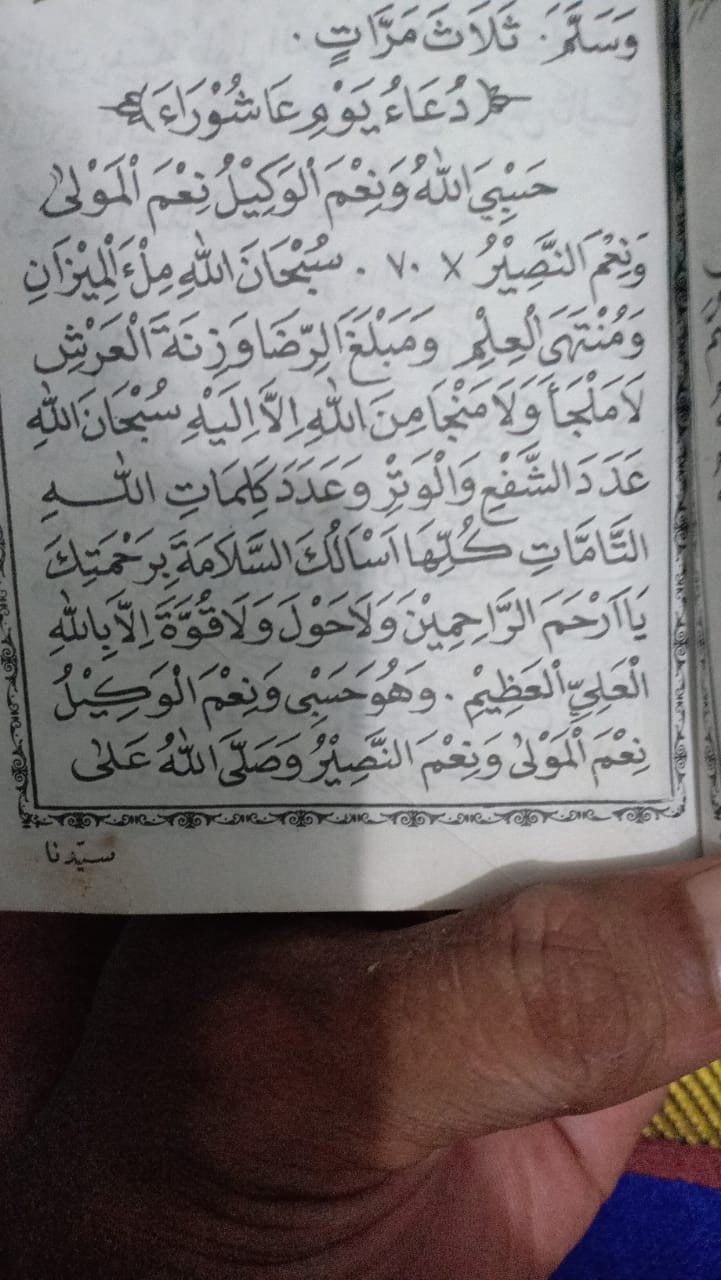 وَسَلَّمَ. ثَلَاثَ مَرَّاتٍ .
﴿دُعَاءُ يَوْمِ عَاشُوْرَاءَ﴾
حَسْبِيَ اللهُ وَنِعْمَ الْوَكِيْلُ نِعْمَ الْمَوْلىٰ
وَنِعْمَ النَّصِيْرُ × ٧٠ . سُبْحَانَ اللهِ مِلْءَ الْمِيْزَانِ
وَمُنْتَهَى الْعِلْمِ وَمَبْلَغَ الرِّضَا وَزِنَةَ الْعَرْشِ
لَا مَلْجَأَ وَلَا مَنْجَا مِنَ اللهِ اِلَّا اِلَيْهِ سُبْحَانَ اللهِ
عَدَدَ الشَّفْعِ وَالْوَتْرِ وَعَدَدَ كَلِمَاتِ اللهِ
التَّامَّاتِ كُلِّهَا اَسْاَلُكَ السَّلَامَةَ بِرَحْمَتِكَ
يَا اَرْحَمَ الرَّاحِمِيْنَ وَلَا حَوْلَ وَلَا قُوَّةَ اِلَّا بِاللهِ
الْعَلِيِّ الْعَظِيْمِ . وَهُوَ حَسْبِى وَنِعْمَ الْوَكِيْلُ
نِعْمَ الْمَوْلىٰ وَنِعْمَ النَّصِيْرُ وَصَلَّى اللهُ عَلىٰ
سيّدنا